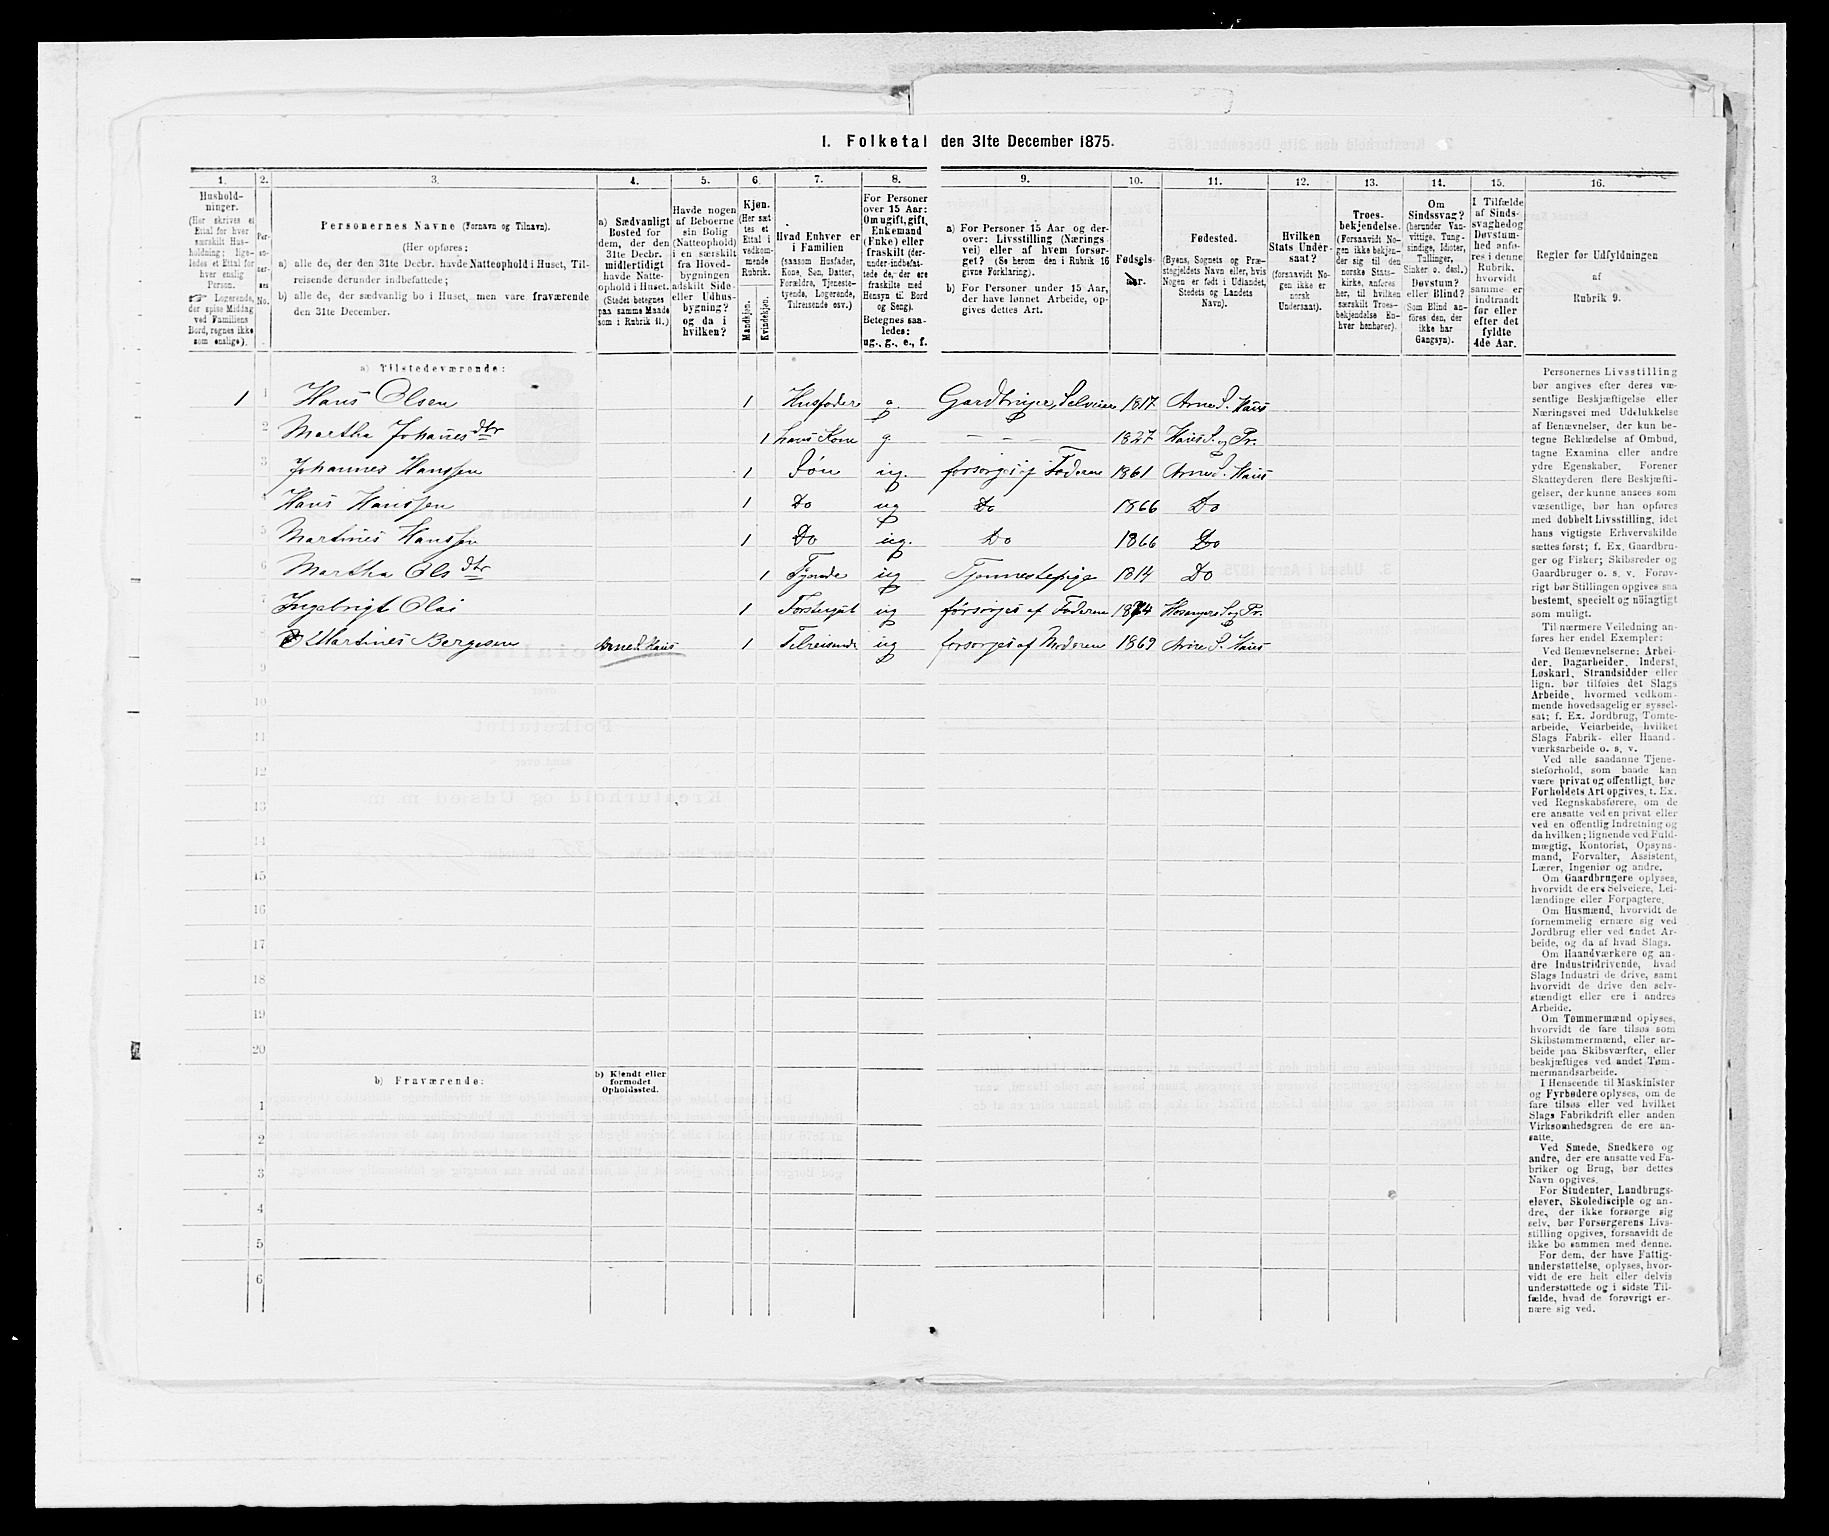 1. Folketal den 31te December 1875.
1. 2. 3. 4. 5. 6. 7. 8. 9. 10. 11. 12. 13. 14. 15. 16.
Hushold-
ninger.
(Her skrives et
Ettal for hver
særskilt Hus-
holdning; lige-
ledes et Ettal for
hver enslig
Person.
Logerende,
der spise Middag
ved Familiens
Bord, regnes ikke
som enslige).
Per-
soner-
nes
No.
Personernes Navne (Fornavn og Tilnavn).
(Her opføres:
a) alle de, der den 31te Decbr. havde Natteophold i Huset, Til-
reisende derunder indbefattede;
b) alle de, der sædvanlig bo i Huset, men vare fraværende
den 31te December.
a) Sædvanligt
Bosted for
dem, der den
31te Decbr.
midlertidigt
havde Natte-
ophold i Huset.
(Stedet betegnes
paa samme Maade
som i Rubrik 11.)
Havde nogen
af Beboerne
sin Bolig
(Natteophold)
i en særskilt
fra Hoved-
bygningen
adskilt Side-
eller Udhus-
bygning?
og da i
hvilken?
Kjøn.
(Her sæt-
tes et
Ettal i
vedkom-
mende
Rubrik.
Mandkjøn.
Kvindekjøn.
Hvad Enhver er
i Familien
(saasom Husfader,
Kone, Søn, Datter,
Forældre, Tjeneste-
tyende, Logerende,
Tilreisende osv.)
For Personer
over 15 Aar:
Om ugift, gift,
Enkemand
(Enke) eller
fraskilt (der-
under indbefat-
tede de, der ere
fraskilte med
Hensyn til Bord
og Seng).
Betegnes saa-
ledes:
ug., g., e., f.
a) For Personer 15 Aar og der-
over: Livsstilling (Nærings-
vei) eller af hvem forsør-
get? (Se herom den i Rubrik 16
givne Forklaring).
b) For Personer under 15 Aar,
der have lønnet Arbeide, op-
gives dettes Art.
Fødsels-
aar.
Fødested.
(Byens, Sognets og Præ-
stegjeldets Navn eller, hvis
Nogen er født i Udlandet,
Stedets og Landets
Navn).
Hvilken
Stats Under-
saat?
(forsaavidt No-
gen ikke er
norsk
Undersaat).
Troes-
bekjendelse.
(Forsaavidt No-
gen ikke bekjen-
der sig til den
norske Stats-
kirke, anføres
her, til hvilken
særskilt Troes-
bekjendelse En-
hver henhører).
Om
Sindssvag?
(herunder Van-
vittige, Tung-
sindige, Idioter,
Tullinger,
Sinker o. desl.)
Døvstum?
eller Blind?
Som Blind an-
føres den, der
ikke har
Gangsyn).
I Tilfælde
af Sinds-
svaghed og
Døvstum-
hed anfø-
res i denne
Rubrik,
hvorvidt
samme er
indtraadt
før eller
efter det
fyldte
4de Aar.
Regler for Udfyldningen
af
Rubrik 9.
a) Tilstedeværende:
1 1 Hans Olsen 1 Husfader g. Gardbruger, Selveier 1817 Arne S. Haus
2 Martha Johanesdtr 1 hans Kone g — — — 1827 Haus S. og Pr.
3 Johannes Hanssen 1 Søn ug. forsørges af Faderen 1861 Arne S. Haus
4 Hans Hanssen 1 Do ug Do 1866 Do
5 Martines Hanssen 1 Do ug. Do 1866 Do
6 Martha Olsdtr 1 Tjende ug Tjennestepige 1814 Do
7 Ingebrigt Olai 1 ug forsørges af Faderen 1874 Hosanger S. og Pr.
8 Martines Bergesen Arne S. Haus 1 Tilreisende ug forsørges af Moderen 1869 Arne S. Haus
9
10
11
12
13
14
15
16
17
18
19
20
b) Fraværende:
b) Kjendt eller
formodet
Opholdssted.
1
2
3
4
5
6
Personernes Livsstilling
bør angives efter deres væ-
sentlige Beskjæftigelse eller
Næringsvei med Udelukkelse
af Benævnelser, der kun be-
tegne Beklædelse af Ombud,
tagne Examina eller andre
ydre Egenskaber. Forener
Skatteyderen flere Beskjæfti-
gelser, der kunne ansees som
væsentlige, bør han opføres
med dobbelt Livsstilling, idet
hans vigtigste Erhvervskilde
sættes først; f. Ex. Gaardbru-
ger og Fisker; Skibsreder og
Gaardbruger o. s. v. Forøv-
rigt bør Stillingen opgives saa
bestemt, specielt og nøiagtigt
som muligt.
Til nærmere Veiledning an-
føres her endel Exempler:
Ved Benævnelserne: Arbei-
der, Dagarbeider, Inderst,
Løskarl, Strandsidder eller
lign. bør tilføies det Slags
Arbeide, hvormed vedkom-
mende hovedsagelig er syssel-
sat; f. Ex. Jordbrug, Tomte-
arbeide, Veiarbeide, hvilket
Slags Fabrik- eller Haand-
værksarbeide o. s. v.
Ved alle saadanne Tjene-
steforhold, som baade kan
være privat og offentligt, bør
Forholdets Art opgives, t. Ex.
ved Regnskabsførere, om de
ere ansatte ved en privat eller
ved en offentlig Indretning og
da hvilken; lignende ved Fuld-
mægtig, Kontorist, Opsyns-
mand, Forvalter, Assistent,
Lærer, Ingeniør og andre.
Om Gaardbrugere oplyses,
hvorvidt de ere Selveiere, Lei-
lændinge eller Forpagtere.
Om Husmænd, hvorvidt de
fornemmelig ernære sig ved
Jordbrug eller ved andet Ar-
beide, og da af hvad Slags.
Om Haandværkere og an-
dre Industridrivende, hvad
Slags Industri de drive, samt
hvorvidt de drive den selv-
stændigt eller ere i andres
Arbeide.
Om Tømmermænd oplyses,
hvorvidt de fare tilsøs som
Skibstømmermænd, eller ar-
beide paa Skibsværfter, eller
beskjæftiges ved andet Tøm-
mermandsarbeide.
I Henseende til Maskinister
og Fyrbødere oplyses, om de
fare tilsøs eller ved hvilket
Slags Fabrikdrift eller anden
Virksomhedsgren de ere an-
satte.
Ved Smede, Snedkere og
andre, der ere ansatte ved Fa-
briker og Brug, bør dettes
Navn opgives.
For Studenter, Landbrugs-
elever, Skoledisciple og an-
dre, der ikke forsørge sig
selv, bør Forsørgerens Livs-
stilling opgives, forsaavidt de
ikke bo sammen med denne.
For dem, der have Fattig-
understøttelse, oplyses, hvor-
vidt de ere helt eller delvis
understøttede og i sidste Til-
fælde, hvad de forøvrigt er-
nære sig ved.